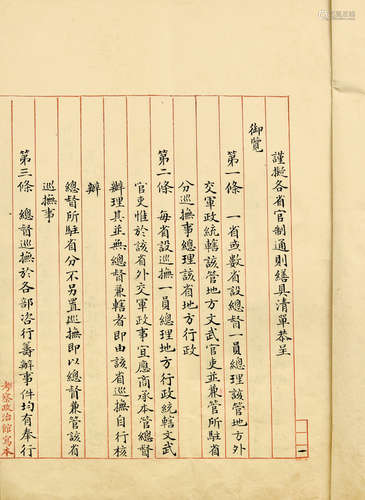 謹擬各省官制通則繕具清單恭呈
御覽
第一條 一省或數省設總督一員總理該管地方外
交軍政統轄該管地方文武官吏並兼管所駐省
分巡撫事總理該省地方行政
第二條 每省設巡撫一員總理地方行政統轄文武
官吏惟於該省外交軍政事宜應商承本管總督
辦理其並無總督兼轄者即由該省巡撫自行核
辦
總督所駐省分不另置巡撫即以總督兼管該省
巡撫事
第三條 總督巡撫於各部咨行籌辦事件均有奉行
考察政治館寫本
一